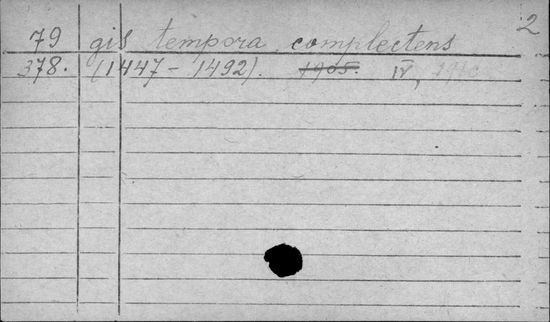 2
79 gis tempora complectens
378. (1447-1492). 1905. IV,